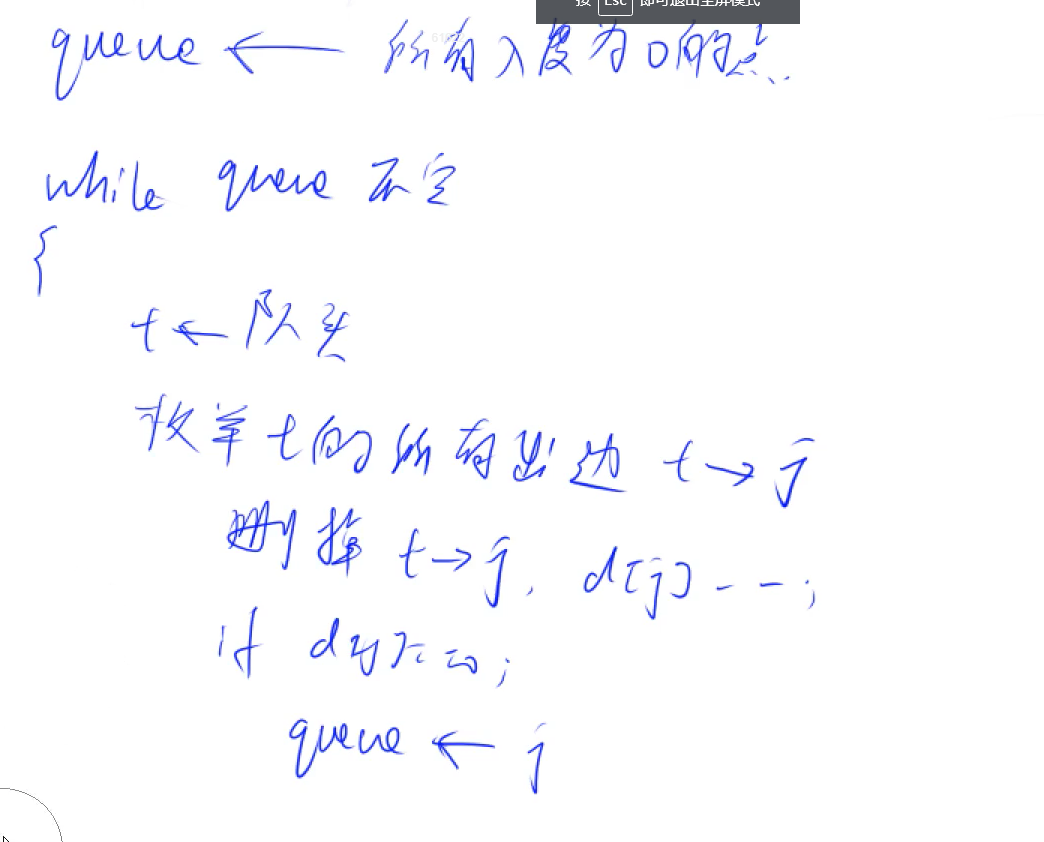 按 Esc 即可退出全屏模式
queue ← 所有入度为0的点.
while queue 不空
{
t ← 队头
枚举 t的所有出边 t→j
删掉 t→j, d[j]--;
if d[j]==0;
queue ← j